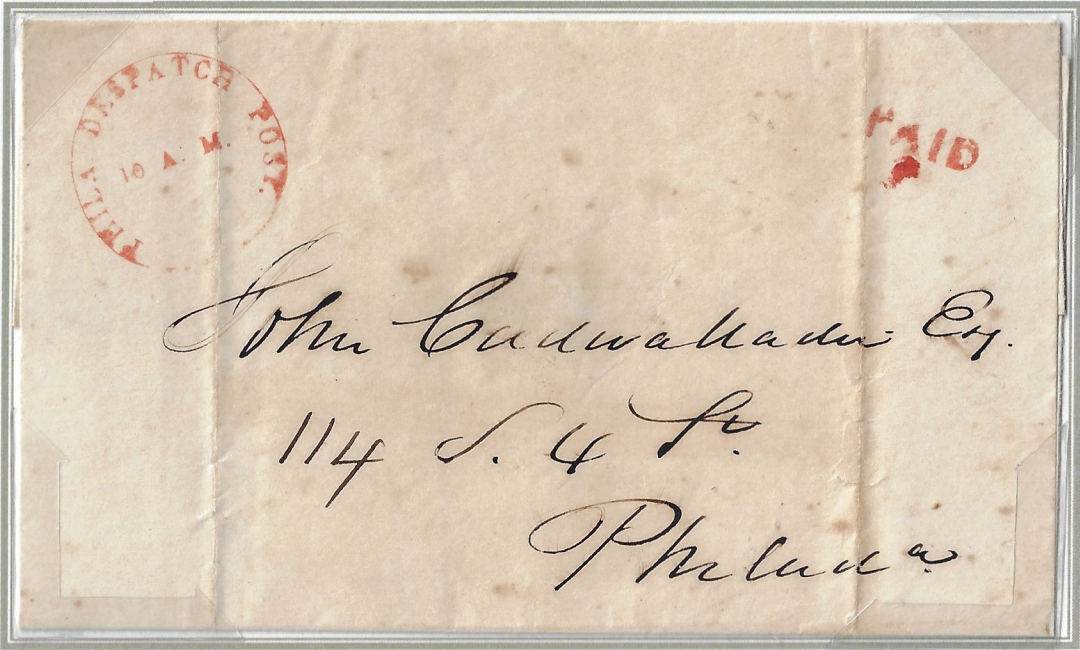 PHILA DESPATCH POST.
10 A. M.
PAID
John Cadwallader Esq.
114 S. 4 St.
Philada.